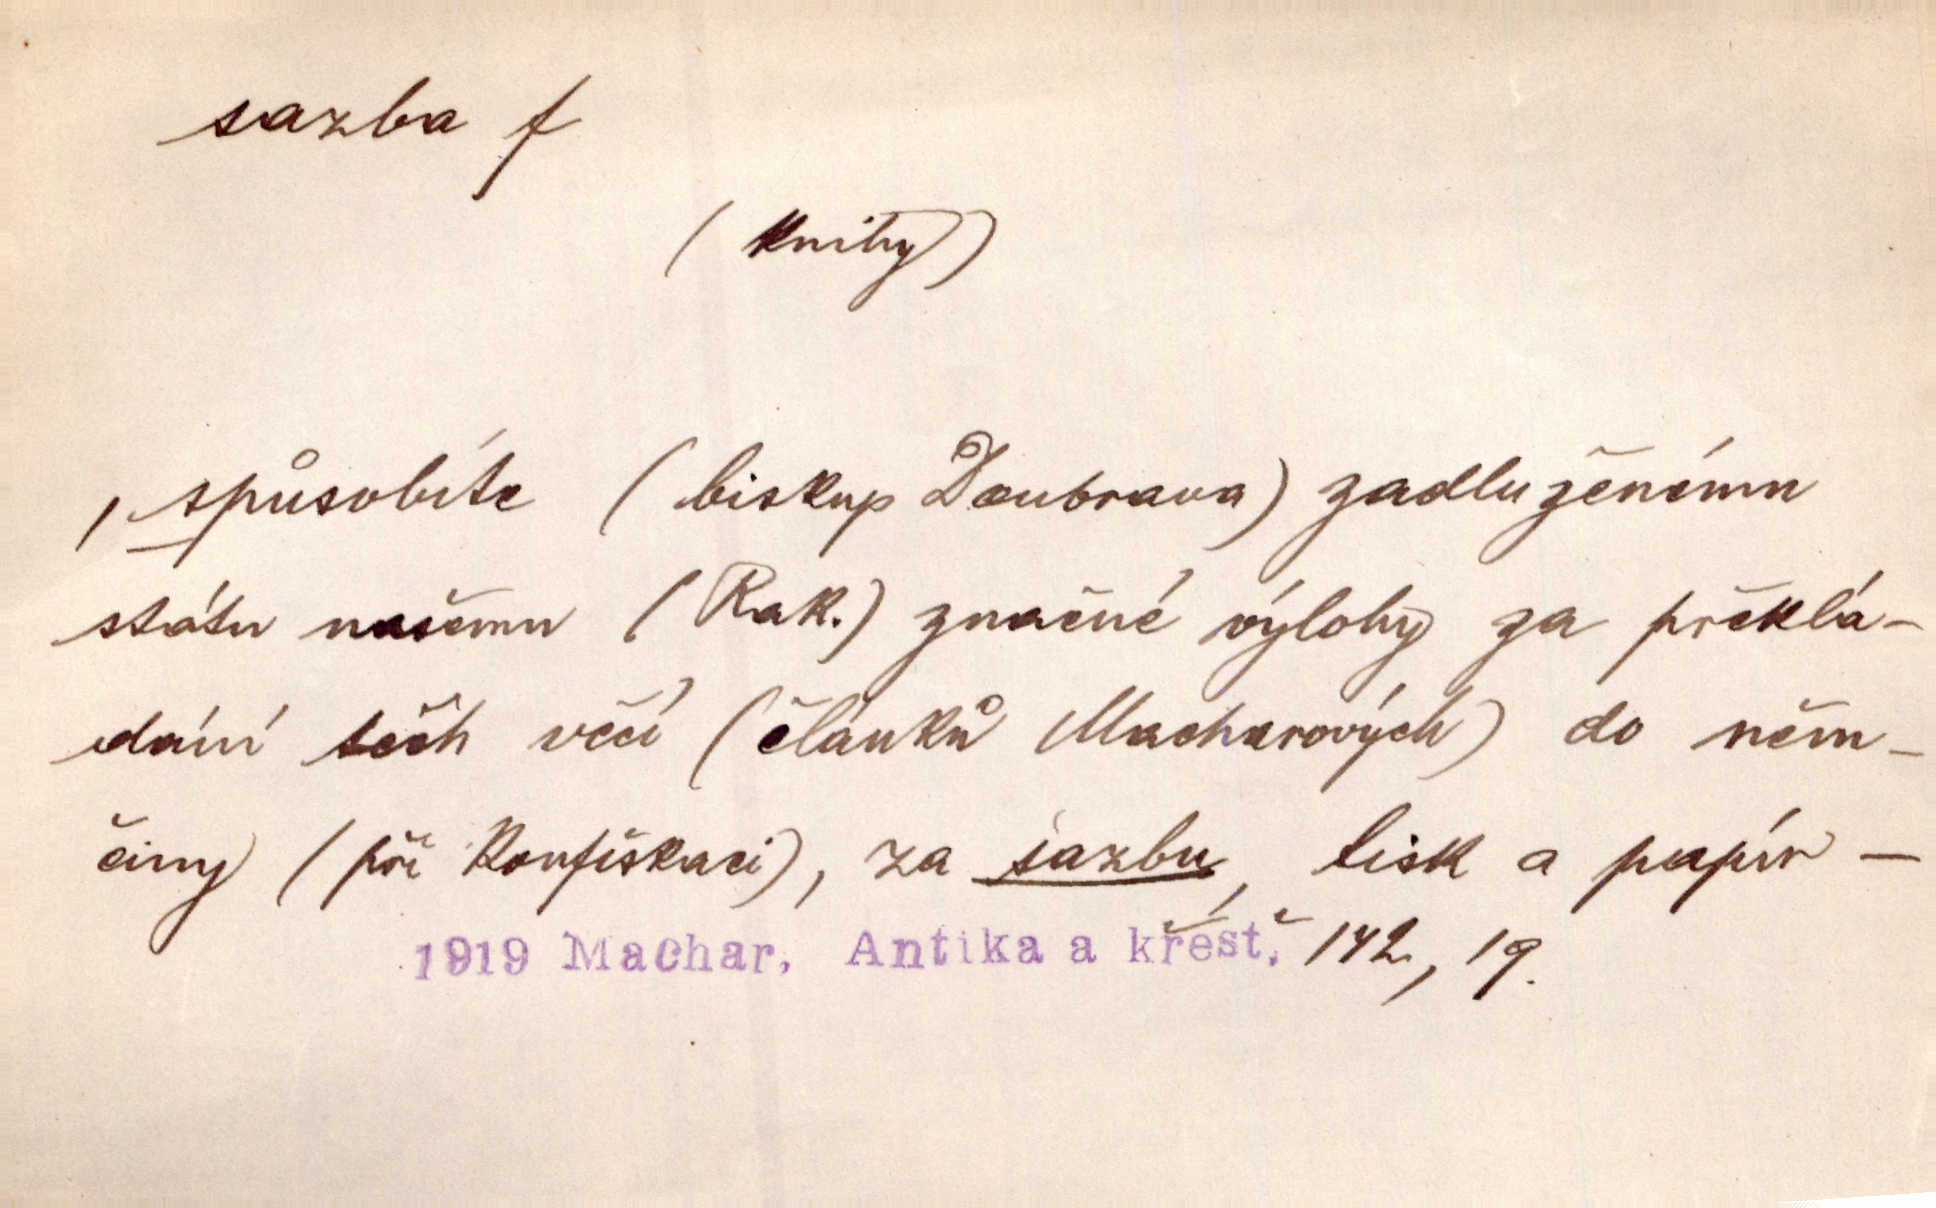 sazba f
(knihy)
, spůsobíte (biskup Doubrava) zadluženému
státu našemu (Rak.) značné výlohy za překlá-
dání těch věcí (článků Macharových) do něm-
činy (při konfiskaci), za sazbu, tisk a papír –
1919 Machar, Antika a křést. 142, 19.